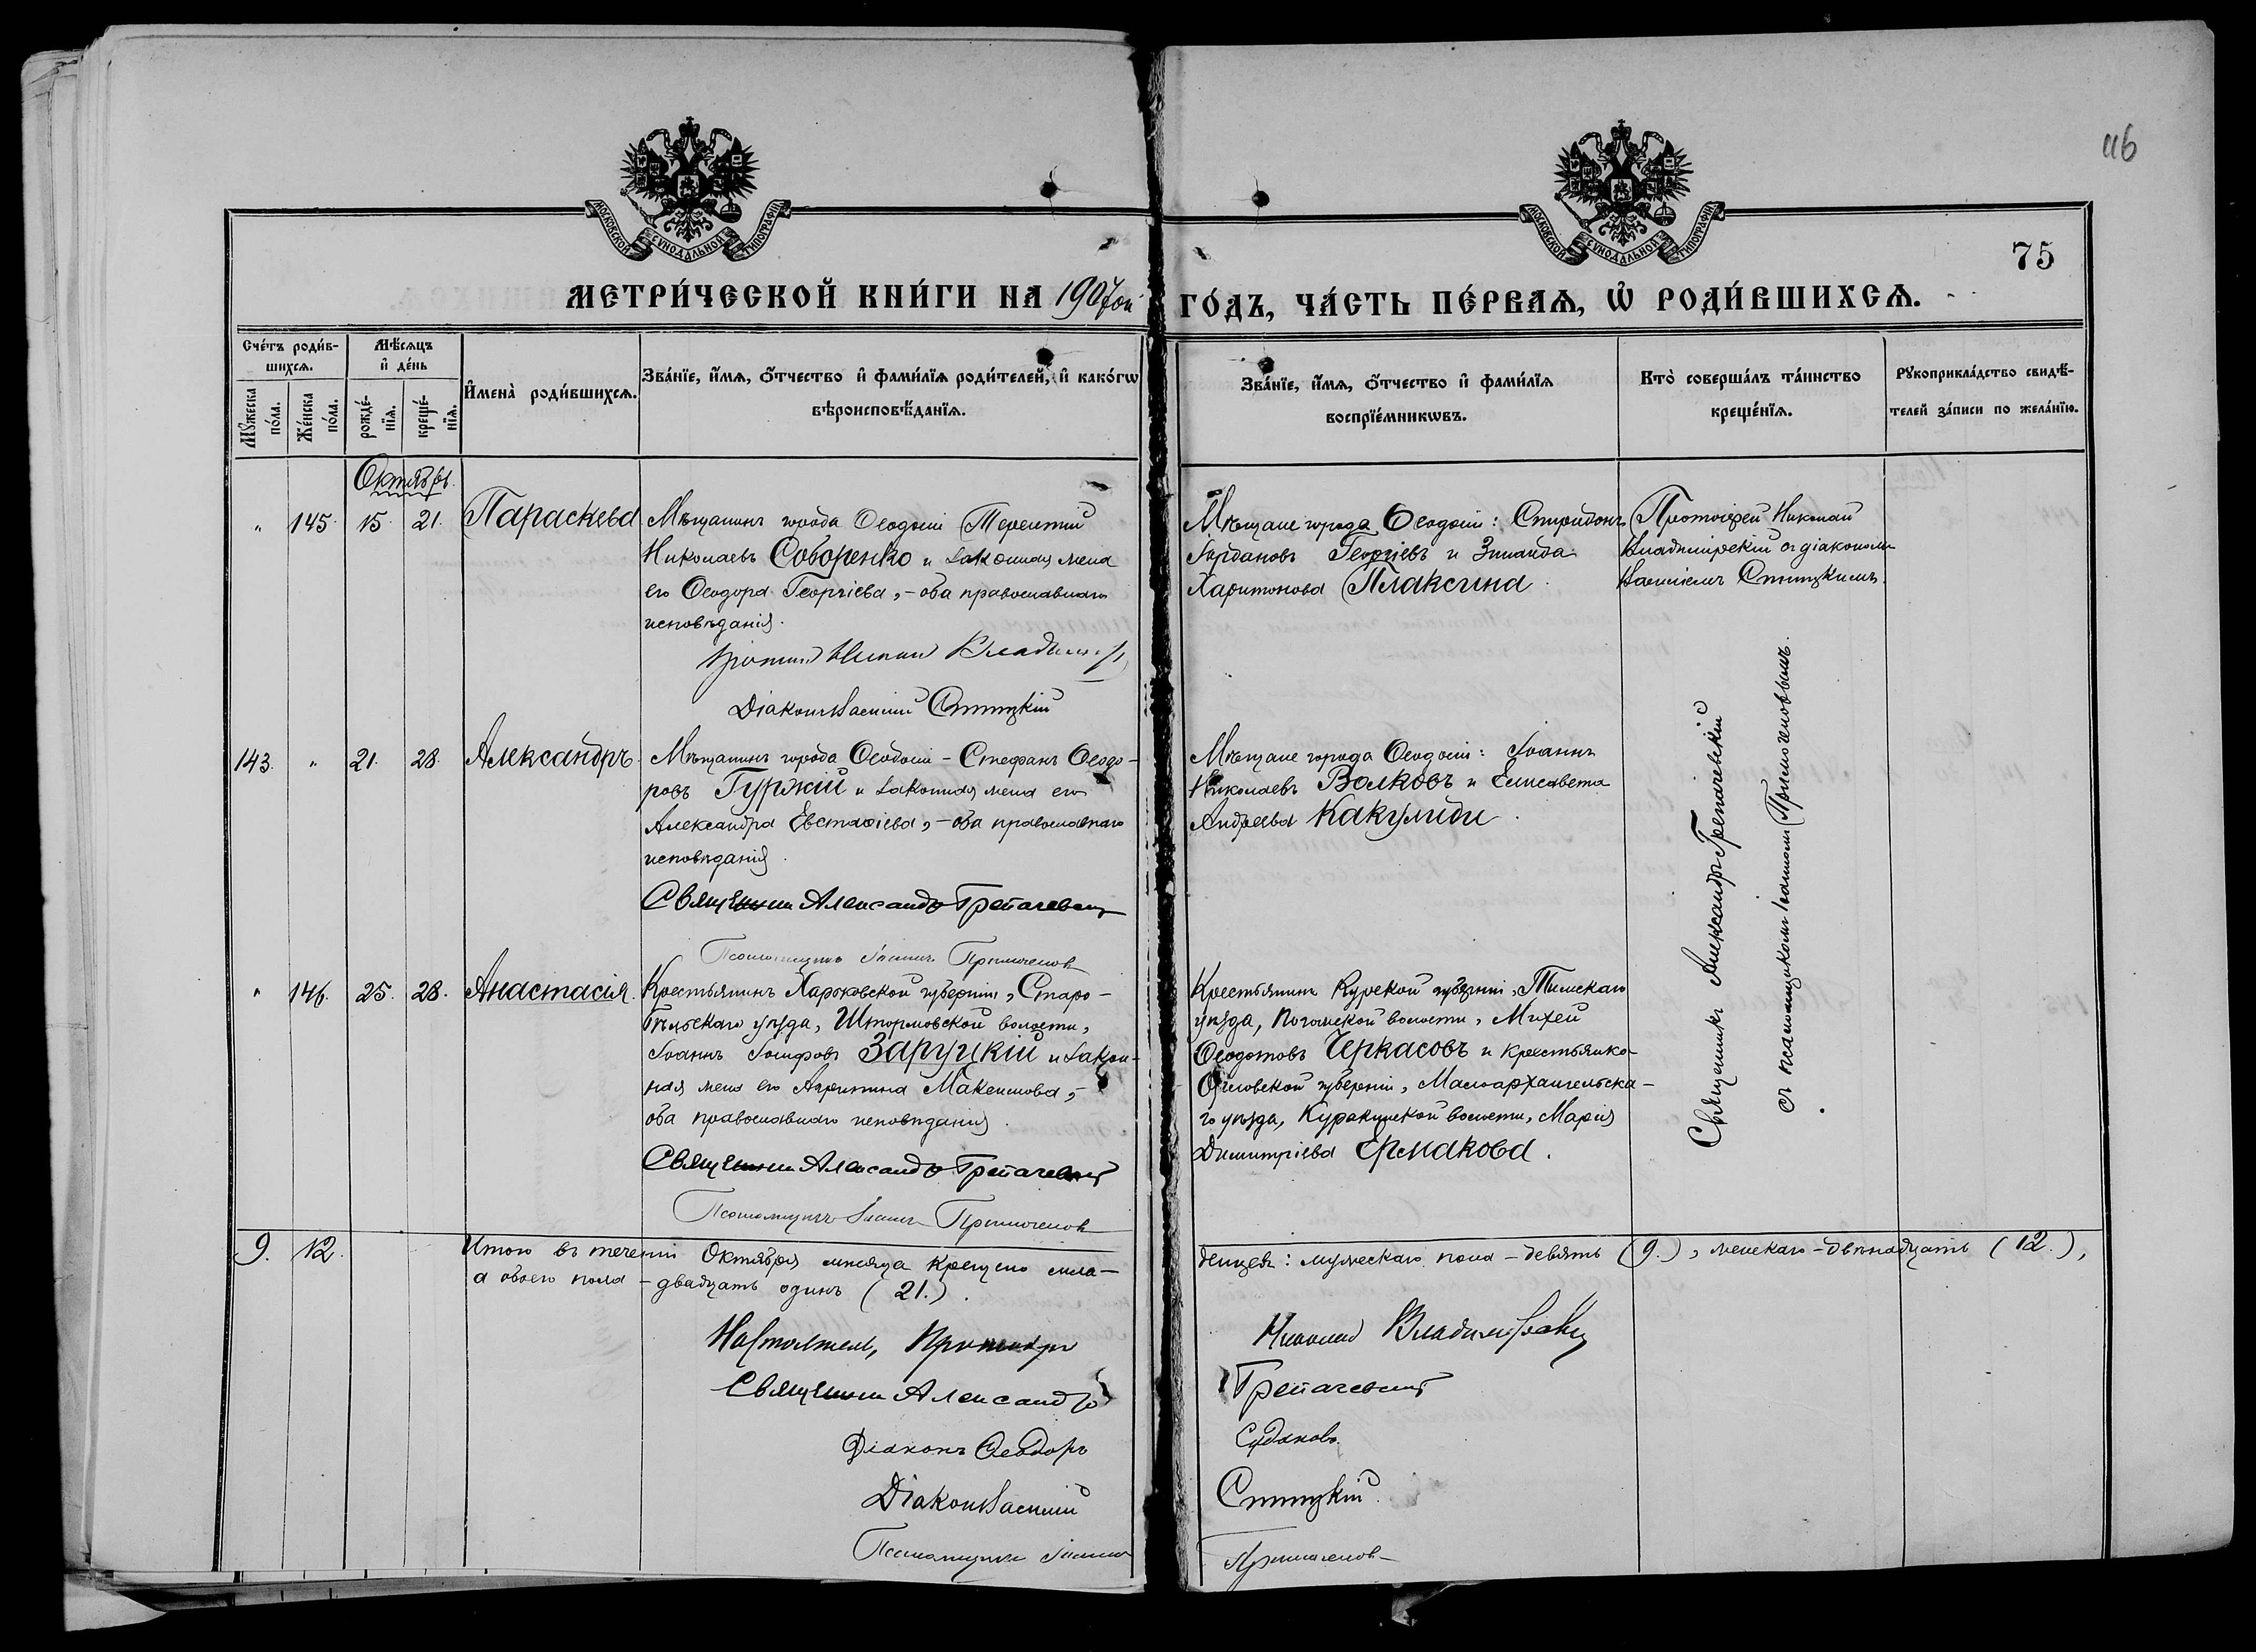 116
МОСКОВСКОЙ СѴНОДАЛЬНОЙ ТИПОГРАФІИ
МОСКОВСКОЙ СѴНОДАЛЬНОЙ ТИПОГРАФІИ
75
МЕТРИ́ЧЕСКОЙ КНИ́ГИ НА 1907ой ГО́ДЪ, ЧА́СТЬ ПЕ́РВАѦ, Ѡ҆ РОДИ́ВШИХСѦ.
Сче́тъ роди́в-
шихсѧ.
Мꙋ́жеска по́ла.
Же́нска по́ла.
Мѣ́сѧцъ
и҆ де́нь
рожде́-
нїѧ.
креще́-
нїѧ.
И҆мена̀ роди́вшихсѧ.
Зва́нїе, и҆́мѧ, ѻ҆́тчество и҆ фами́лїѧ роди́телей, и҆ како́гѡ
вѣроисповѣ́данїѧ.
Зва́нїе, и҆́мѧ, ѻ҆́тчество и҆ фами́лїѧ
воспрїе́мникѡвъ.
Кто̀ соверша́лъ та́инство
креще́нїѧ.
Рꙋкоприкла́дство свидѣ́-
телей за́писи по жела́нїю.
Октябрь.
" 145. 15. 21. Параскева
Мѣщанинъ города Ѳеодосіи Терентій
Николаевъ Соборенко и законная жена
его Ѳеодора Георгіева, - оба православнаго
исповѣданія.
Діаконъ Василій
Мѣщане города Ѳеодосіи: Спиридонъ
Іордановъ Георгіевъ и Зинаида
Харитонова Плаксина.
Протоіерей Николай
Владимірскій съ діакономъ
Василіемъ
143. " 21. 28. Александръ.
Мѣщанинъ города Ѳеодосіи - Стефанъ Ѳеодо-
ровъ Гуржій и законная жена его
Александра Евстаѳіева, - оба православнаго
исповѣданія.
Священникъ Александръ
Псаломщикъ Іоаннъ
Мѣщане города Ѳеодосіи: Іоаннъ
Николаевъ Волковъ и Елисавета
Андреева Какулиди.
Священникъ Александръ
съ псаломщикомъ Іоанномъ
" 146. 25. 28. Анастасія.
Крестьянинъ Харьковской губерніи, Старо-
бѣльскаго уѣзда, Штормовской волости,
Іоаннъ Іосифовъ Заруцкій и закон-
ная жена его Агриппина Максимова, -
оба православнаго исповѣданія.
Священникъ Александръ
Псаломщикъ Іоаннъ
Крестьянинъ Курской губерніи, Тимскаго
уѣзда, волости, Михей
Ѳеодотовъ Черкасовъ и крестьянка
Орловской губерніи, Малоархангельска-
го уѣзда, Куракинской волости, Марія
Димитріева Ермакова.
9. 12. Итого въ теченіи Октября мѣсяца крещено мла-
денцевъ: мужескаго пола - девять (9.), женскаго - двѣнадцать (12.),
а обоего пола - двадцать одинъ (21.).
Настоятель, Протоіерей Николай Владимірскій
Священникъ Александръ
Діаконъ Ѳеодоръ Судаковъ.
Діаконъ Василій
Псаломщикъ Іоаннъ